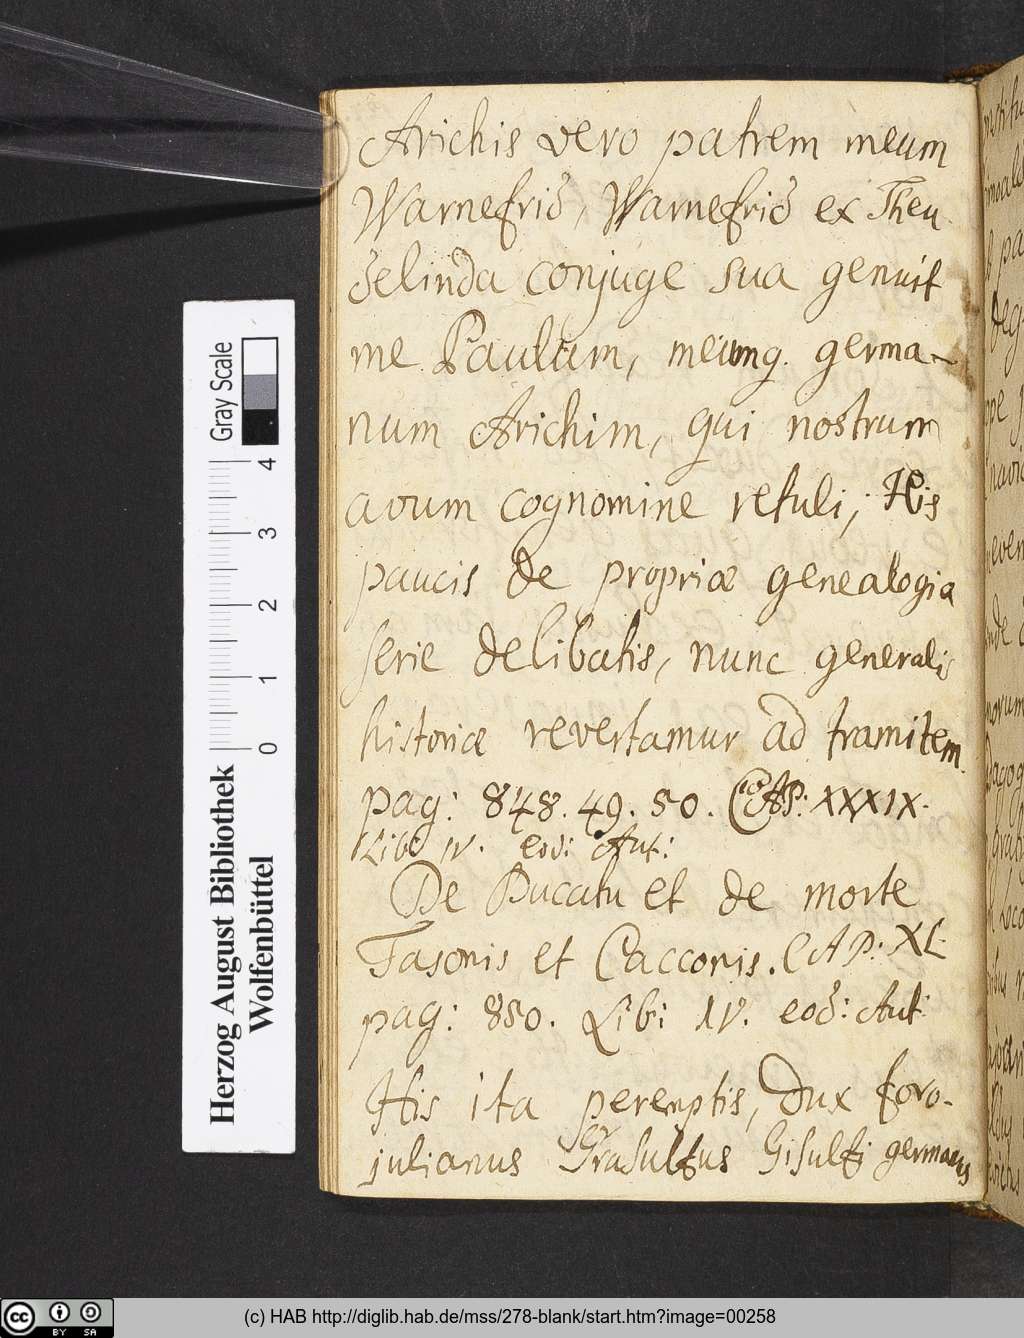 Arichis vero patrem meum
Warnefrid, Warnefrid ex Theu-
delinda conjuge sua genuit
me Paulum, meumq. germa-
num Arichim, qui nostrum
avum cognomine retuli; His
paucis de propriæ genealogia
serie delibatis, nunc generalis
historiæ revertamur ad tramitem.
pag: 848. 49. 50. CAP: XXXIX.
Lib: IV. eod: Aut:
De Ducatu et de morte
Tasonis et Cacconis. CAP: XL
pag: 850. Libi IV. eod: Aut:
His ita peremptis, Dux foro-
julianus Grasulfus Gisulfi germanus
Gray Scale
4
3
2
1
0
Herzog August Bibliothek
Wolfenbüttel
cc BY SA
(c) HAB http://diglib.hab.de/mss/278-blank/start.htm?image=00258